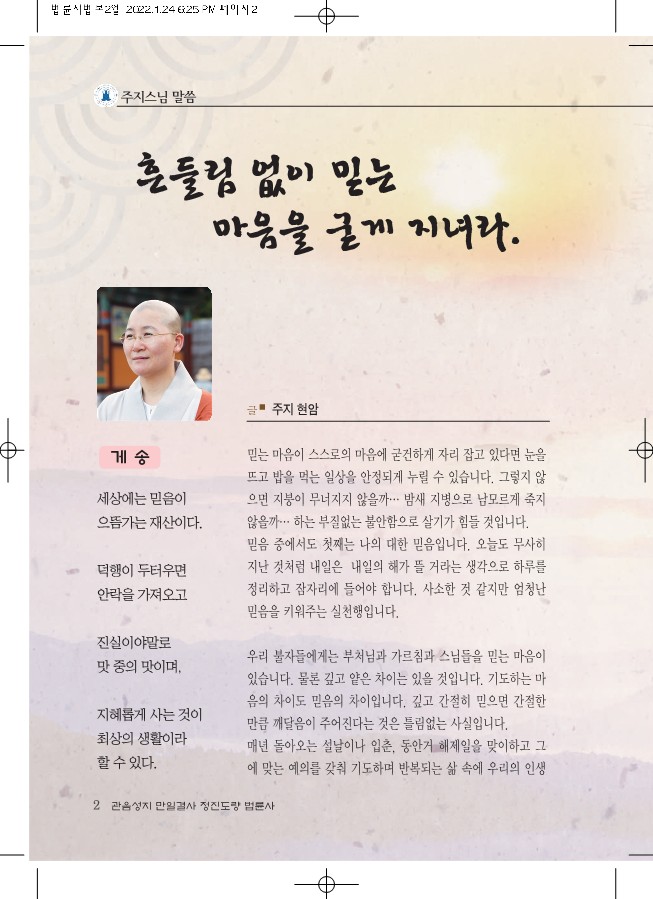 법륜사법보2월  2022.1.24 6:25 PM 페이지2
주지스님 말씀
흔들림 없이 믿는
마음을 굳게 지녀라.
글 ■ 주지 현암
게 송
세상에는 믿음이
으뜸가는 재산이다.
덕행이 두터우면
안락을 가져오고
진실이야말로
맛 중의 맛이며,
지혜롭게 사는 것이
최상의 생활이라
할 수 있다.
믿는 마음이 스스로의 마음에 굳건하게 자리 잡고 있다면 눈을
뜨고 밥을 먹는 일상을 안정되게 누릴 수 있습니다. 그렇지 않
으면 지붕이 무너지지 않을까… 밤새 지병으로 남모르게 죽지
않을까… 하는 부질없는 불안함으로 살기가 힘들 것입니다.
믿음 중에서도 첫째는 나의 대한 믿음입니다. 오늘도 무사히
지난 것처럼 내일은  내일의 해가 뜰 거라는 생각으로 하루를
정리하고 잠자리에 들어야 합니다. 사소한 것 같지만 엄청난
믿음을 키워주는 실천행입니다.
우리 불자들에게는 부처님과 가르침과 스님들을 믿는 마음이
있습니다. 물론 깊고 얕은 차이는 있을 것입니다. 기도하는 마
음의 차이도 믿음의 차이입니다. 깊고 간절히 믿으면 간절한
만큼 깨달음이 주어진다는 것은 틀림없는 사실입니다.
매년 돌아오는 설날이나 입춘, 동안거 해제일을 맞이하고 그
에 맞는 예의를 갖춰 기도하며 반복되는 삶 속에 우리의 인생
2 관음성지 만일결사 정진도량 법륜사